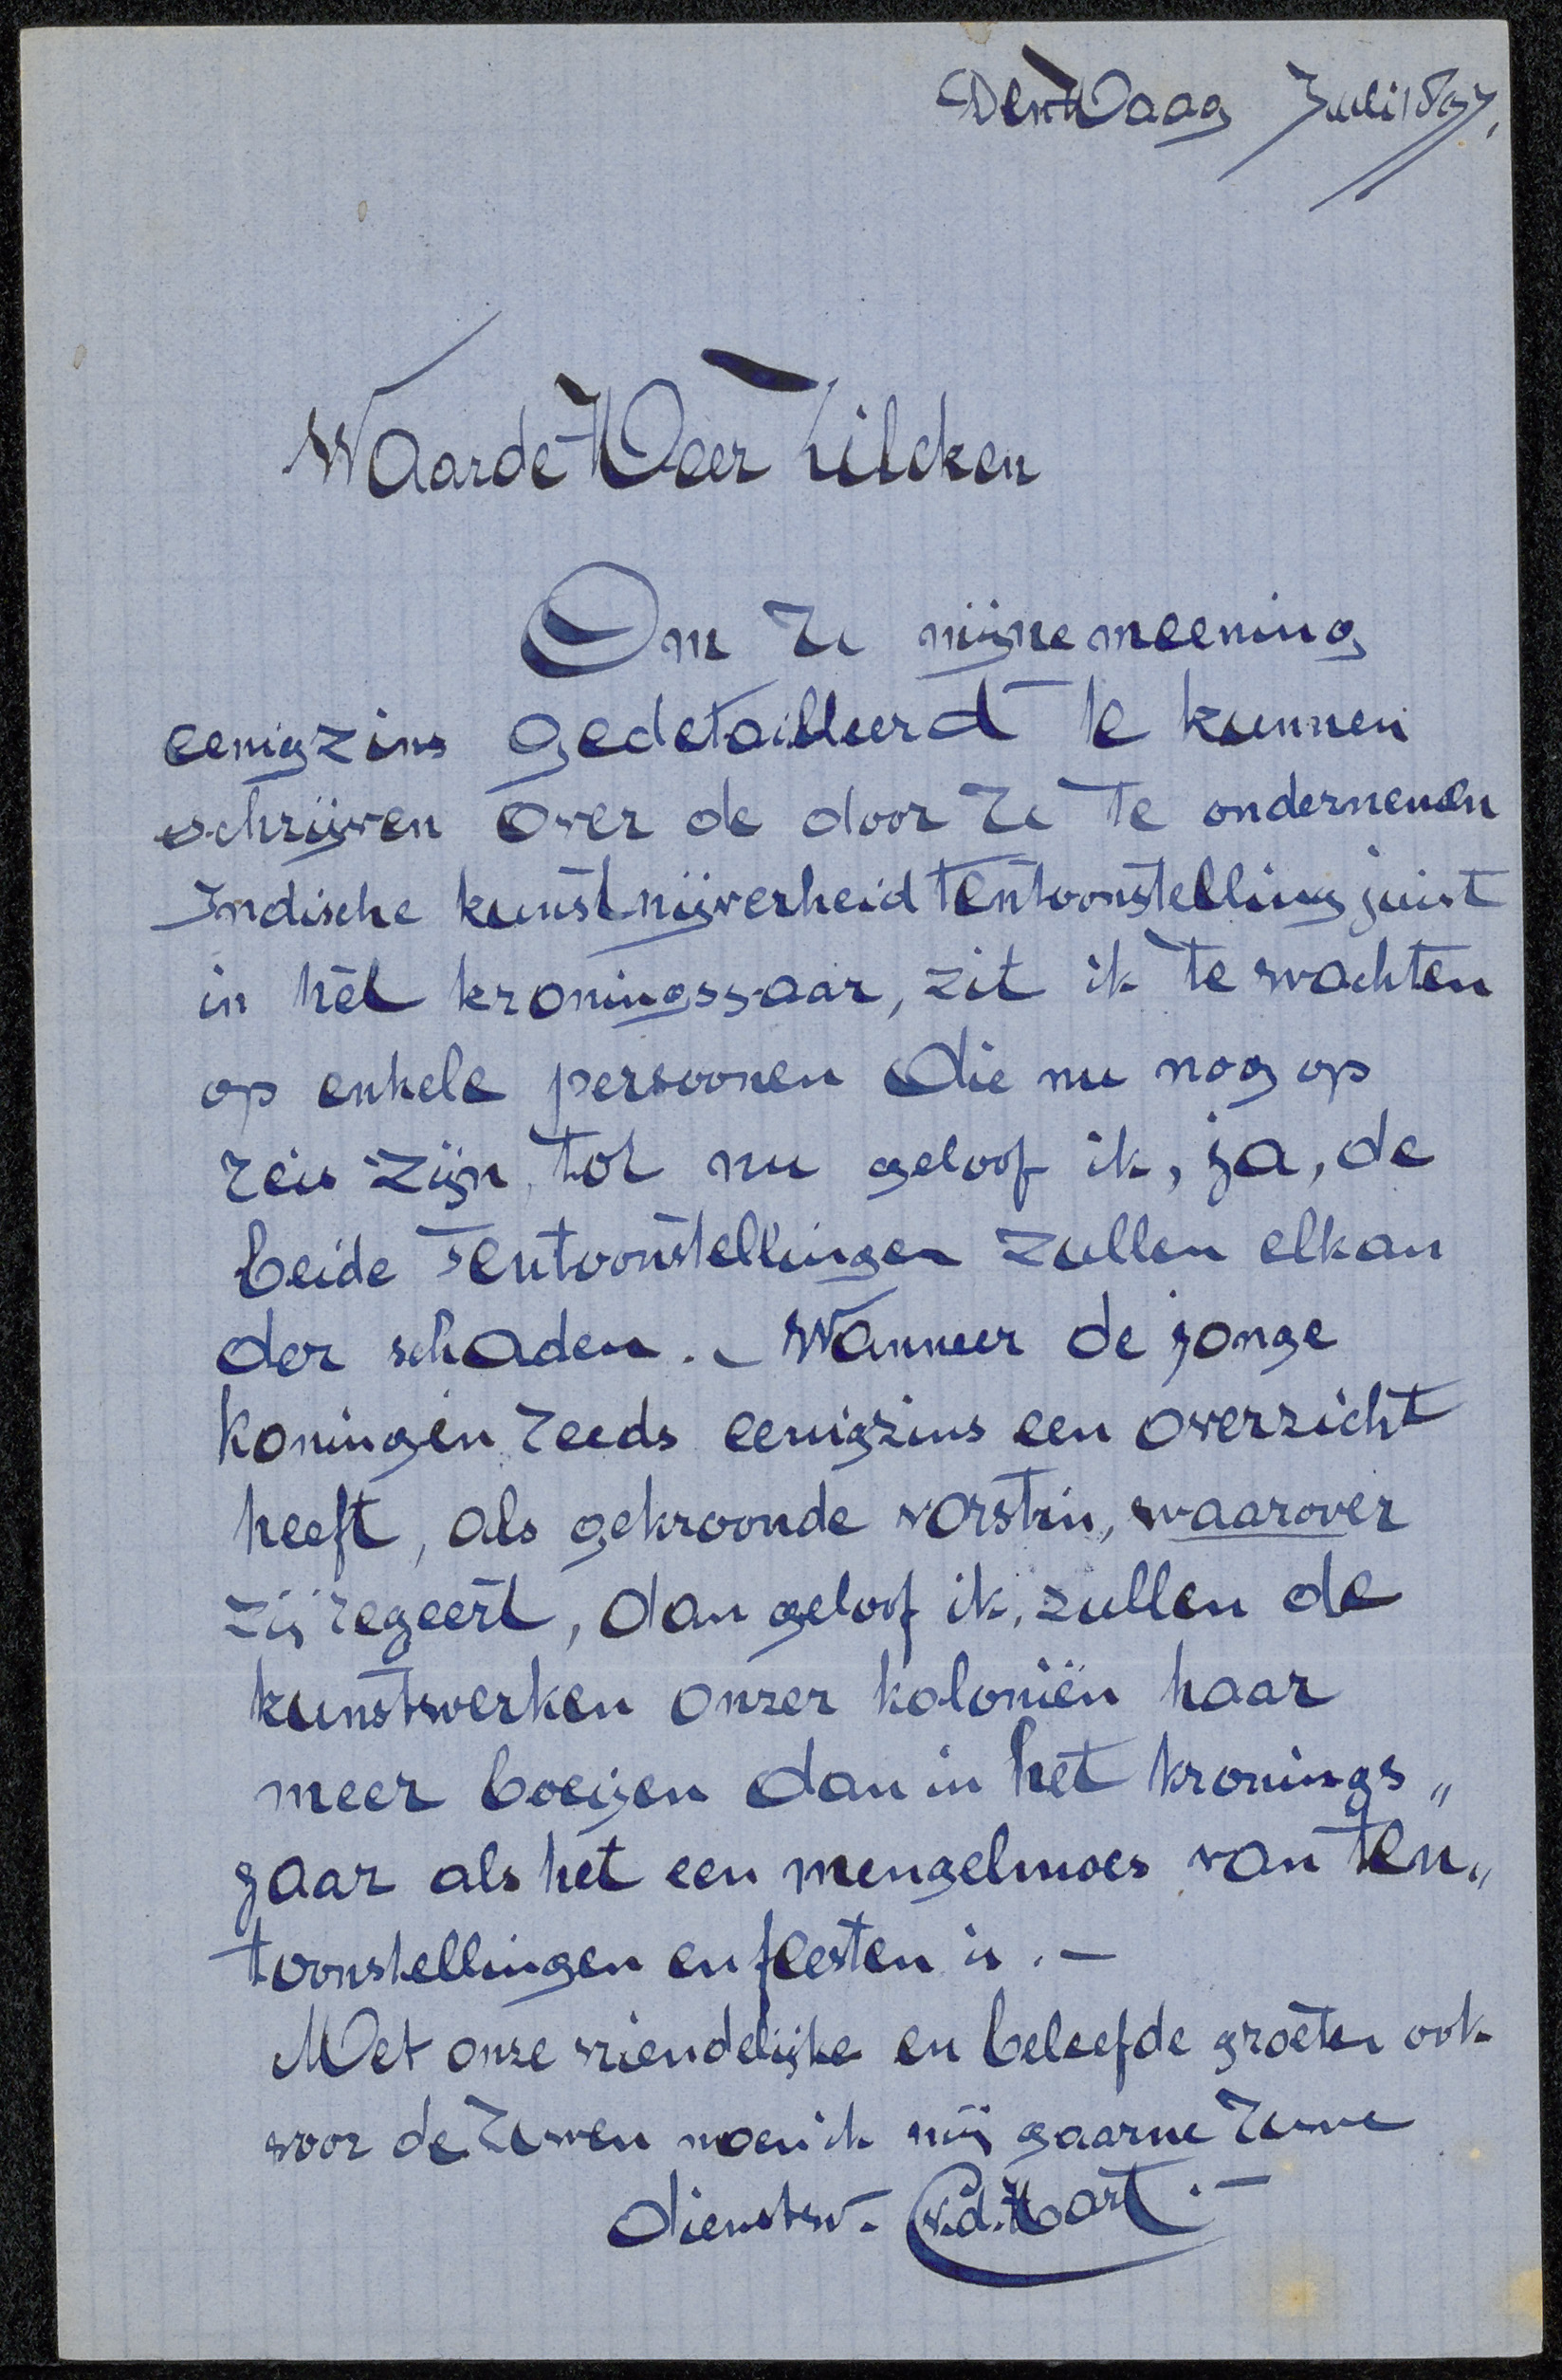 Den Haag Juli 1897.
Waarde Heer Zilcken
Om U mijne meening
eenigzins gedetailleerd te kunnen
schrijven over de door U te ondernemen
Indische kunstnijverheid tentoonstelling juist
in het kroningsjaar, zit ik te wachten
op enkele persoonen die nu nog op
reis zijn, tot nu geloof ik, ja, de
beide tentoonstellingen zullen elkan
der schaden. - Wanneer de jonge
koningin reeds eenigzins een overzicht
heeft, als gekroonde vorstin, waarover
zij regeert, dan geloof ik, zullen de
kunstwerken onzer koloniën haar
meer boeijen dan in het kronings„
jaar als het een mengelmoes van ten„
toonstellingen en feesten is. -
Met onze vriendelijke en beleefde groeten ook
voor de Uwen noem ik mij gaarne Uwe
dienstw. v.d. Hart. -